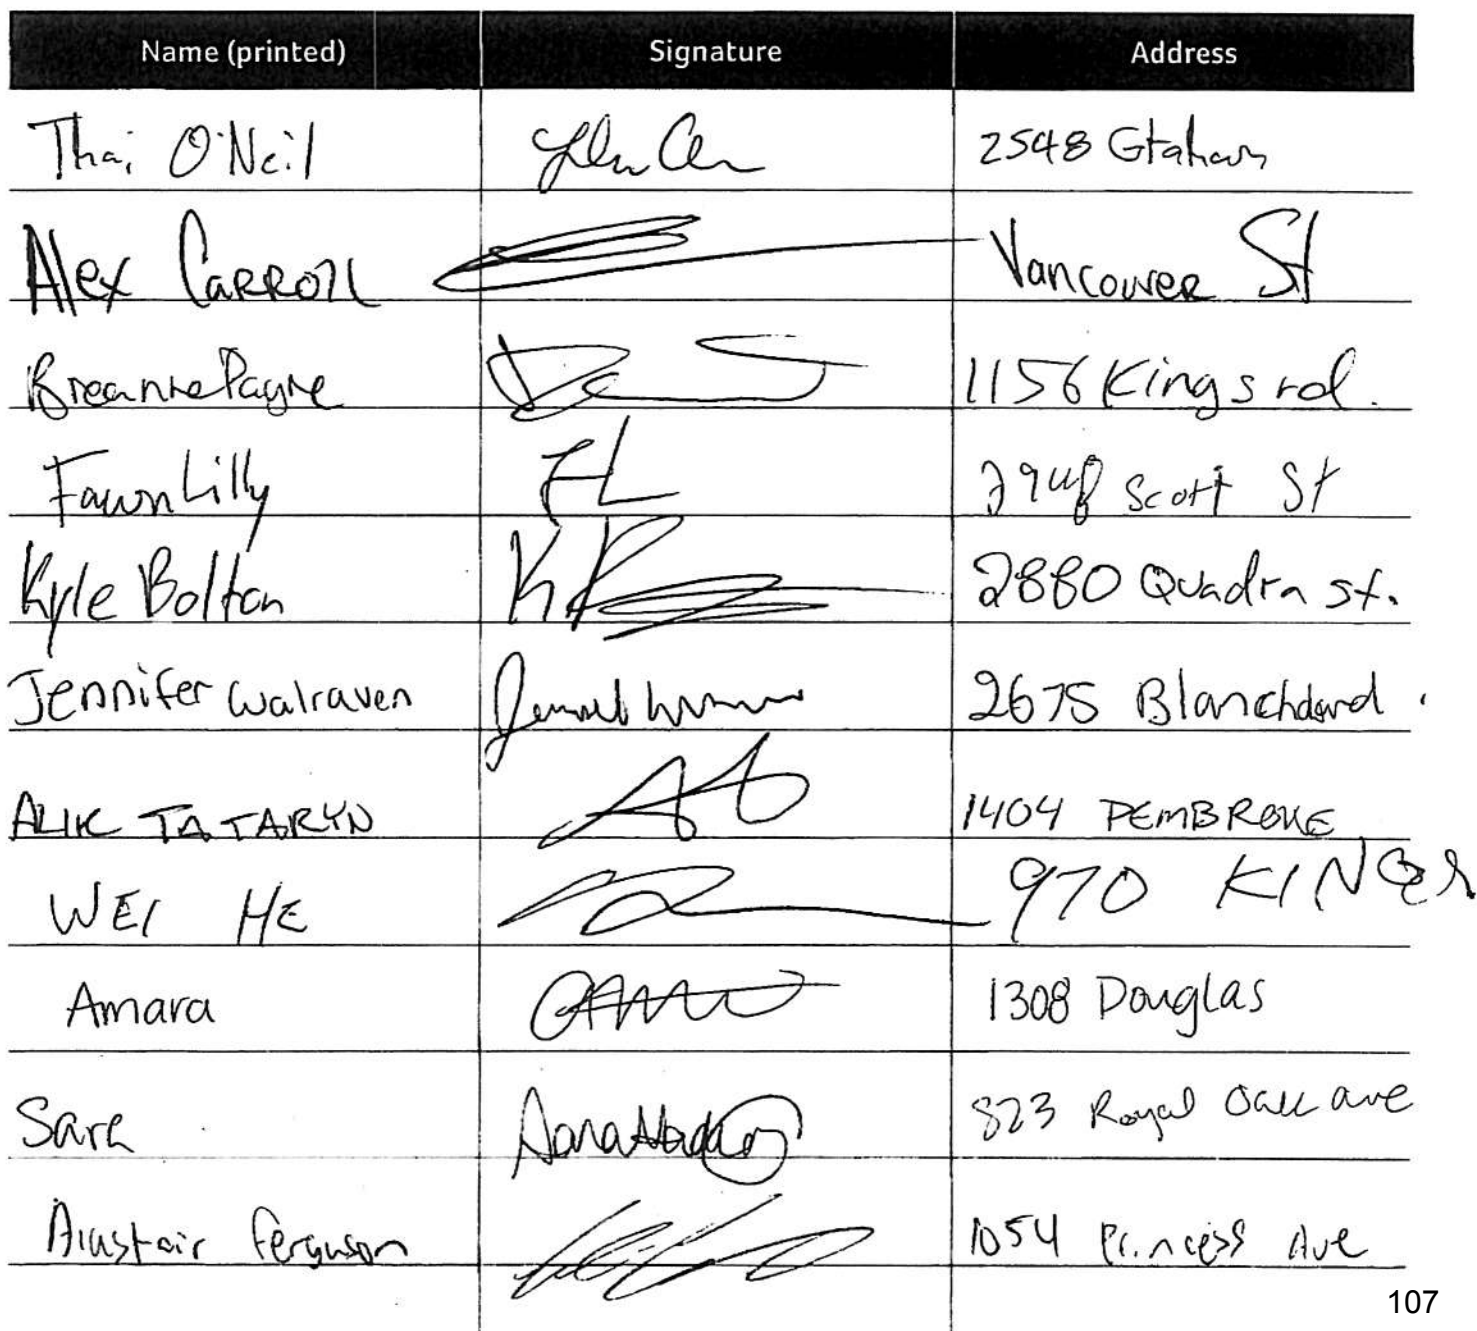 Name (printed) Signature Address
Thai O'Neil 2548
Alex CARROLL Vancouver St
Breanne Payne 1156 Kings rd.
Fawn Lilly FL 2948 Scott St
Kyle Bolton 2880 Quadra st.
Jennifer Walraven 2675
ALIK TATARYN 1404 PEMBROKE
WEI HE 970 KINGS
Amara 1308 Douglas
Sara 823 Royal Oak ave
Alastair Ferguson 1054 Princess Ave
107